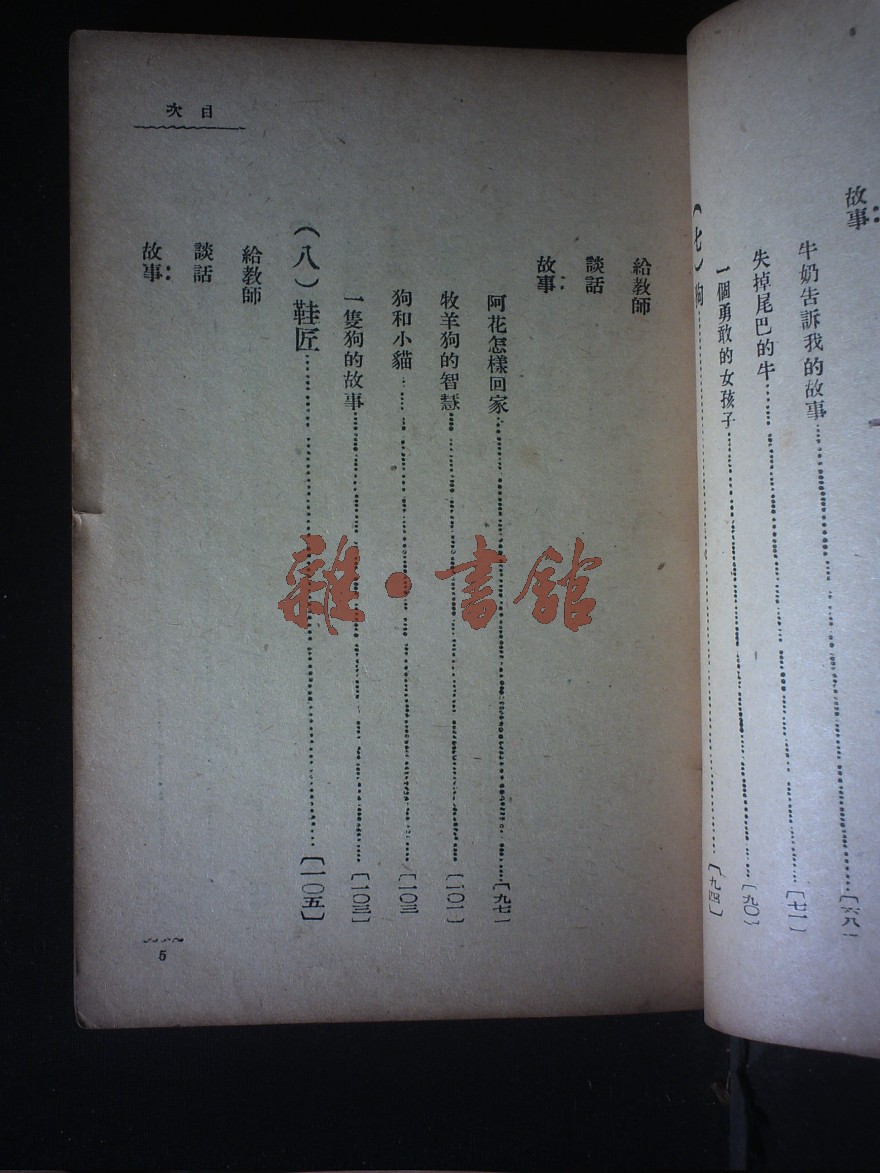 故事：
牛奶告訴我的故事……〔六八〕
失掉尾巴的牛……〔七一〕
一個勇敢的女孩子……〔九〇〕
（七）狗……〔九四〕
目次
給教師
談話
故事：
阿花怎樣回家……〔九七〕
牧羊狗的智慧……〔一〇一〕
狗和小貓……〔一〇三
一隻狗的故事……〔一〇三〕
（八）鞋匠……〔一〇五〕
給教師
談話
故事：
5
雜·書館